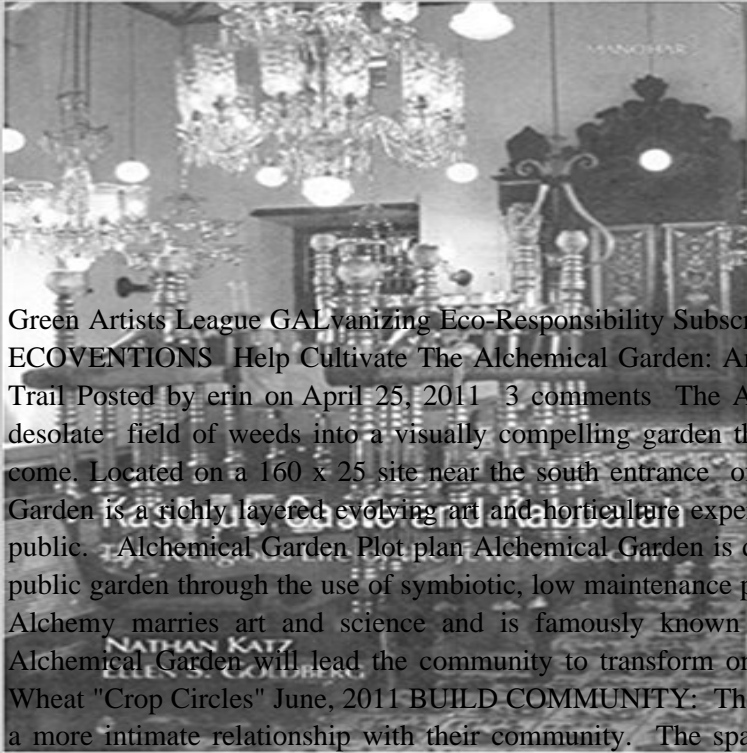 MANOHAR
Green Artists League GALvanizing Eco-Responsibility Subscr
ECOVENTIONS Help Cultivate The Alchemical Garden: Ar
Trail Posted by erin on April 25, 2011 3 comments The A
desolate field of weeds into a visually compelling garden th
come. Located on a 160 x 25 site near the south entrance of
Garden is a richly layered evolving art and horticulture expe
Kashrut, Caste and Kabbalah
public. Alchemical Garden Plot plan Alchemical Garden is
public garden through the use of symbiotic, low maintenance p
Alchemy marries art and science and is famously known
NATHAN KATZ
Alchemical Garden will lead the community to transform or
ELLEN S. GOLDBERG
Wheat "Crop Circles" June, 2011 BUILD COMMUNITY: Th
a more intimate relationship with their community. The spa